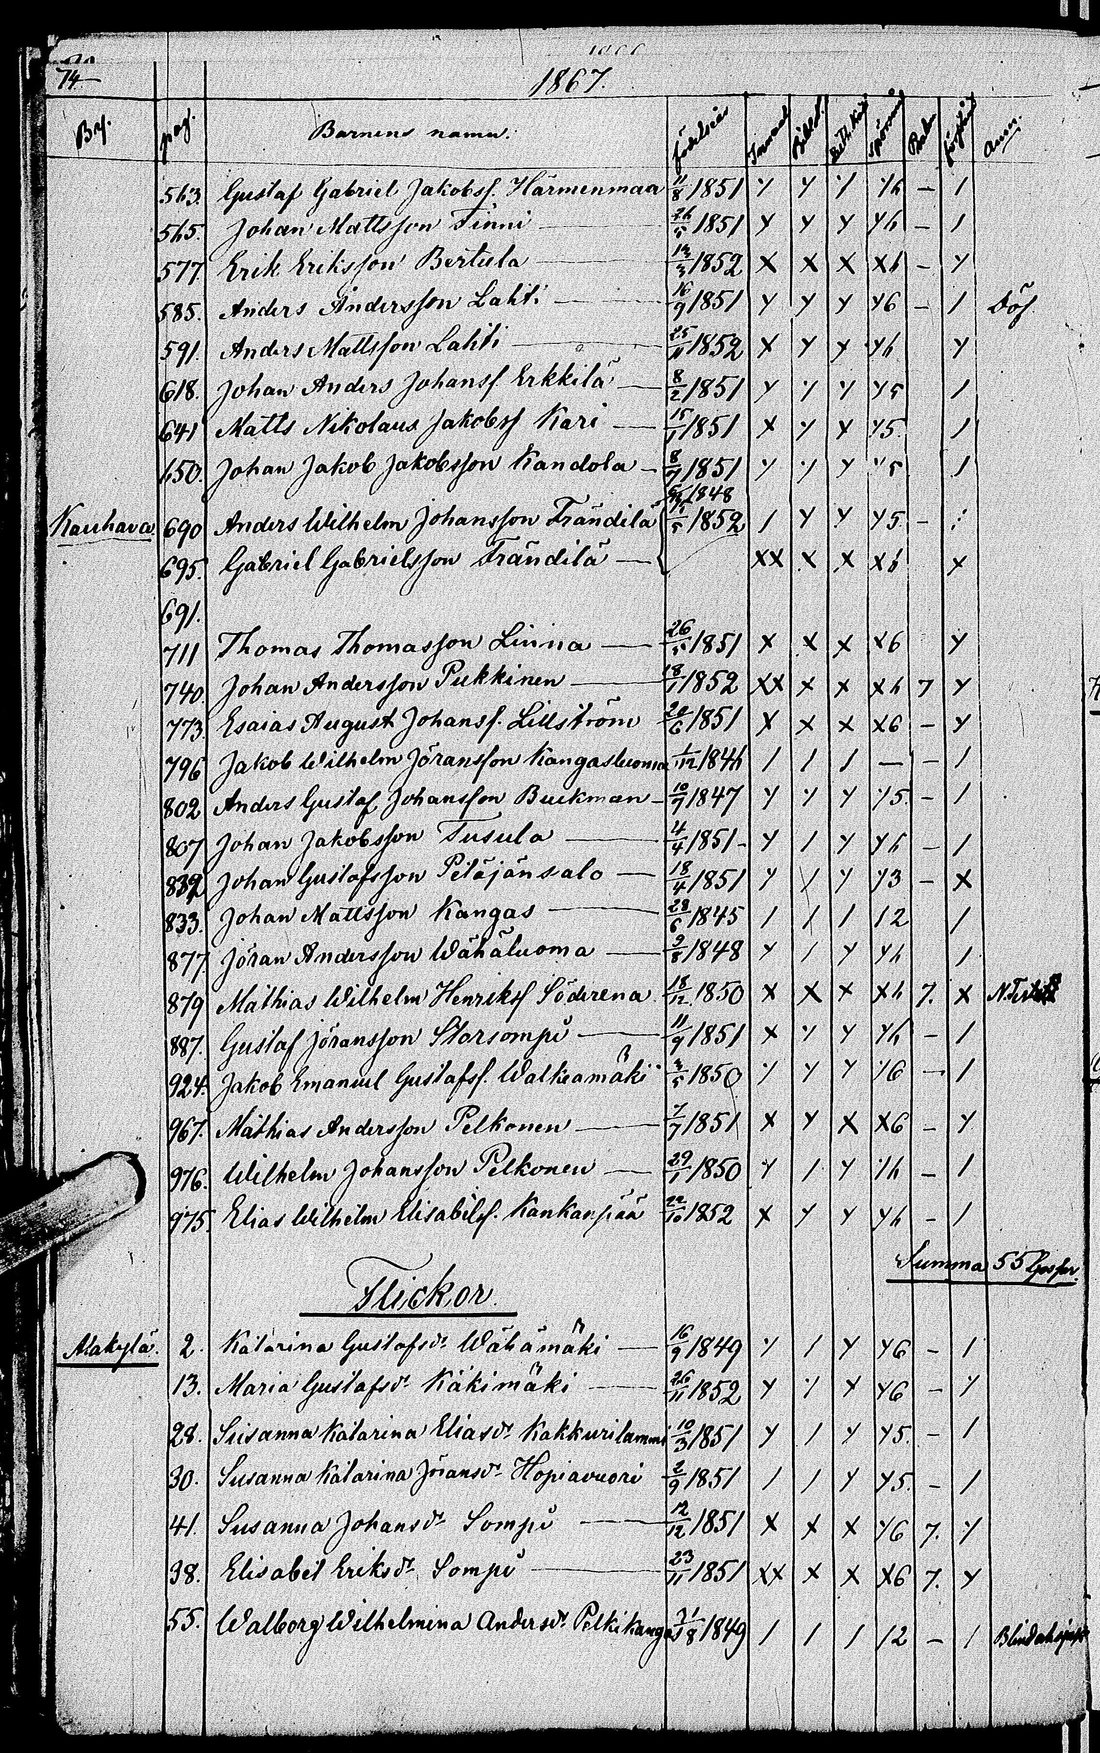 74
1867.
By. pag. Barnens namn. födelseår Anm.
563. Gustaf Gabriel Jakobsf. Härmenmaa 11/8 1851 y y y yh – 1
565. Johan Mattsson Finni 26/5 1851 y y y yh – 1
577. Erik Eriksson Bertula 13/3 1852 x x x xh – y
585. Anders Andersson Lahti 16/9 1851 y y y y6 – 1 Döf
591. Anders Mattsson Lahti 25/11 1852 x y y yh y
618. Johan Anders Johansf. Erkkilä 8/2 1851 y y y y5 1
641 Matts Nikolaus Jakobsf Kari 15/1 1851 x y x y5. 1
650. Johan Jakob Jakobsson Kandola 8/7 1851 y y y y5 1
1848
Kauhava 690 Anders Wilhelm Johansson Frändilä 1852 1 y y y5 –
695. Gabriel Gabrielsson Frändilä xx x x xh x
691.
711 Thomas Thomasson Linna 26/5 1851 x x x x6 y
740. Johan Andersson Pukkinen 18/1 1852 xx x x xh 7 y
773. Esaias August Johansf. Lillström 20/6 1851 x x x x6 – y
796 Jakob Wilhelm Jöransson Kangasluoma 1/12 1846 1 1 1 – – 1
802 Anders Gustaf Johansson Buckman 10/7 1847 y y y y5. – 1
807 Johan Jakobsson Tusula 4/4 1851 y 1 y yh – 1
832 Johan Gustafsson Petäjänsalo 18/4 1851 y 1 y y3 – x
833. Johan Mattsson Kangas 28/6 1845 1 1 1 12 1
877. Jöran Andersson Wähäluoma 9/8 1848 y 1 y yh 1
879 Mathias Wilhelm Henriksf Söderena 18/12 1850 x x x xh 7. x
887. Gustaf Jöransson Storsompi 11/9 1851 x y y yh – 1
924. Jakob Emanuel Gustafsf. Walkeamäki 3/5 1850 y y y y6 – 1
967. Mathias Andersson Pelkonen 7/7 1851 x y x x6 – y
976. Wilhelm Johansson Pelkonen 29/1 1850 y 1 y yh – 1
975. Elias Wilhelm Elisabetsf. Kankanpää 22/10 1852 x y y yh – 1
Summa 55 Gossar.
Flickor.
Alakylä. 2. Katarina Gustafsdr Wähämäki 16/9 1849 y 1 y y6 – 1
13. Maria Gustafsdr Käkimäki 26/11 1852 y y x y6 – y
28. Susanna Katarina Eliasdr Kakkurilammi 10/3 1851 y 1 y y5. – 1
30. Susanna Katarina Jöransdr Hopiavuori 2/9 1851 1 1 y y5. – 1
41. Susanna Johansdr Sompi 12/12 1851 x x x y6 7. y
38. Elisabet Eriksdr Sompi 23/11 1851 xx x x x6 7. y
55. Walborg Wilhelmina Andersdr Pelkikangas 31/8 1849 1 1 1 12 – 1